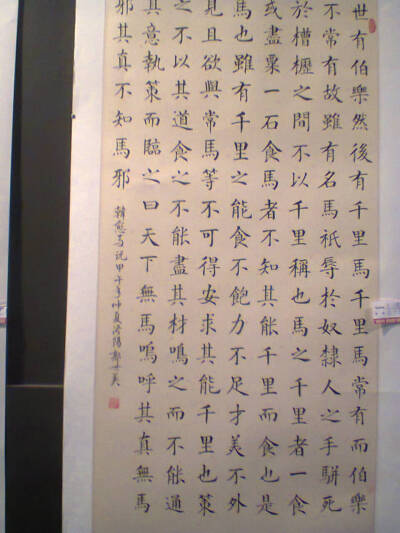 世有伯樂然後有千里馬千里馬常有而伯樂
不常有故雖有名馬祇辱於奴隸人之手駢死
於槽櫪之間不以千里稱也馬之千里者一食
或盡粟一石食馬者不知其能千里而食也是
馬也雖有千里之能食不飽力不足才美不外
見且欲與常馬等不可得安求其能千里也策
之不以其道食之不能盡其材鳴之而不能通
其意執策而臨之曰天下無馬嗚呼其真無馬
邪其真不知馬邪
韓愈馬說甲午年仲夏洛陽郭美